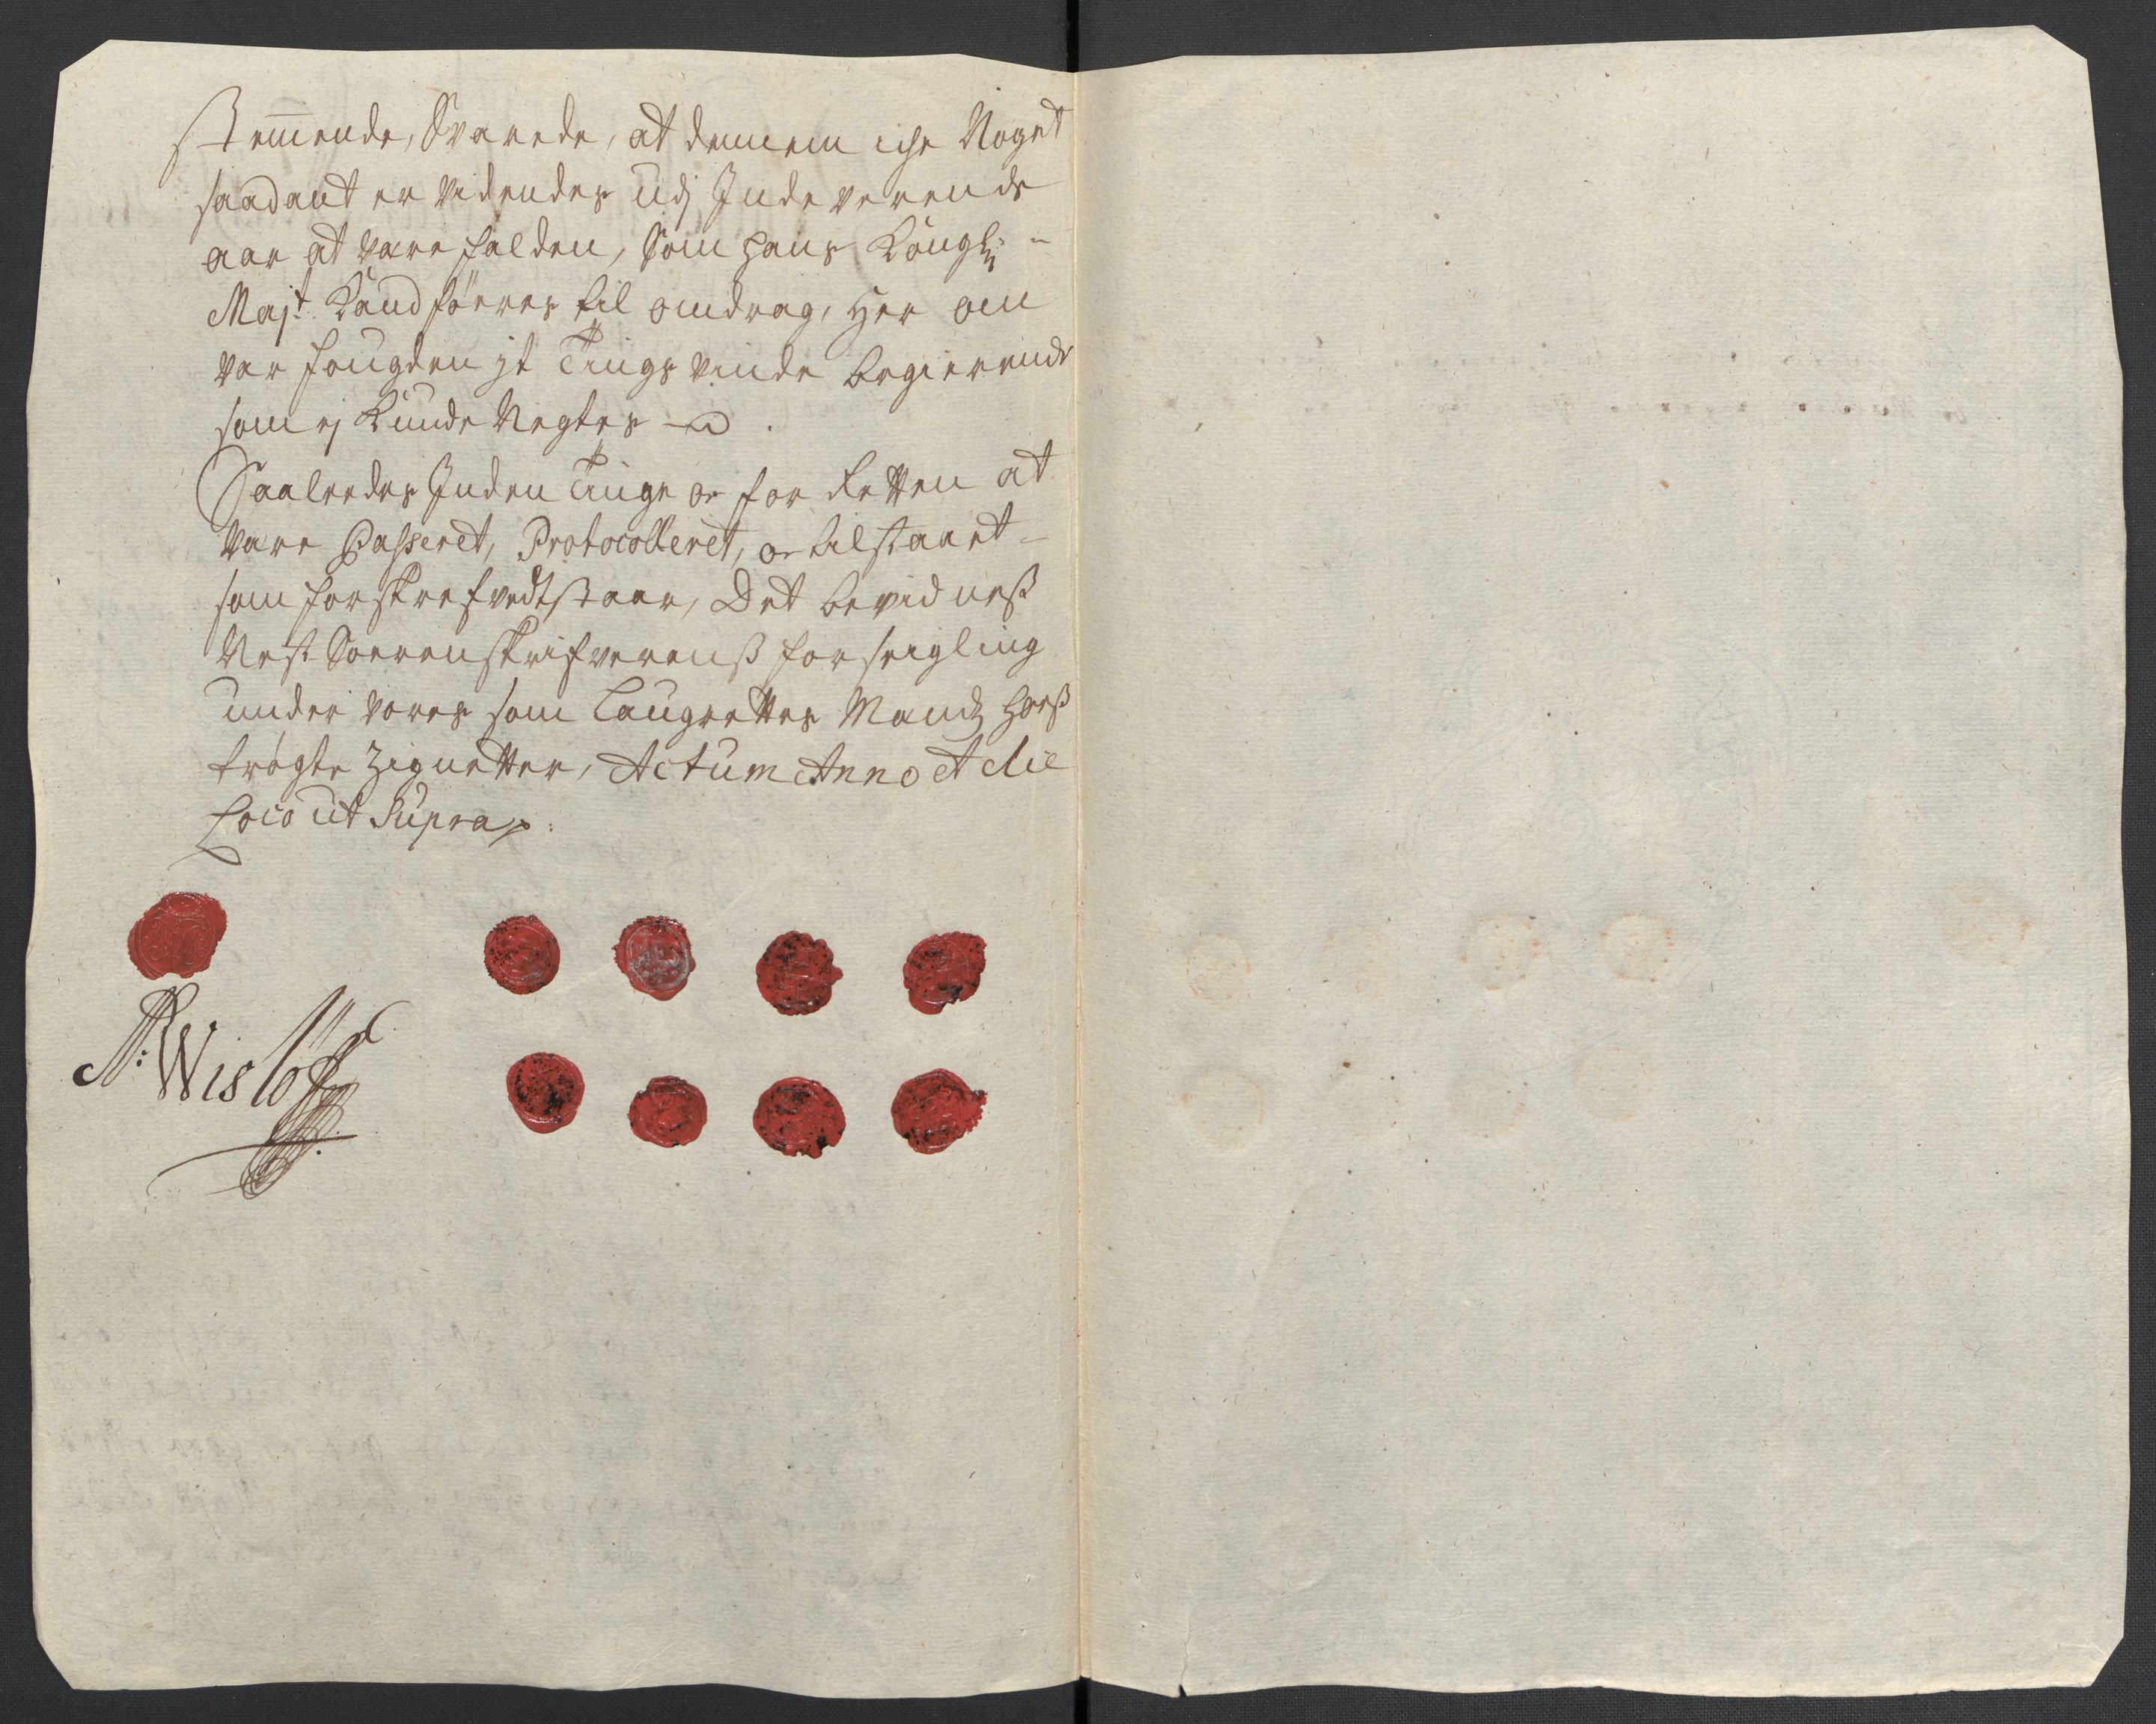 stemmende, Svarede, at dennem iche Noget
saadant er Videndes udj Inde verende
aar at være falden, Som hans Kongl:
Maj:t Kand föeres til indrag, her om
var fougden jt Tings vinde begierende
som ej Kunde Negtes
Saaleedes Inden Tinge og for Retten at
være Passeret, Protocolleret, og tilstaaet
som forskrefvedt staar, Det bevidness
Nest Sorenskrifverenss forseigling
under vores som Laugrettes Mænd hoess
trögte Zignetter, Actum Anno et die
Loco ut Supra
A: Wislöff